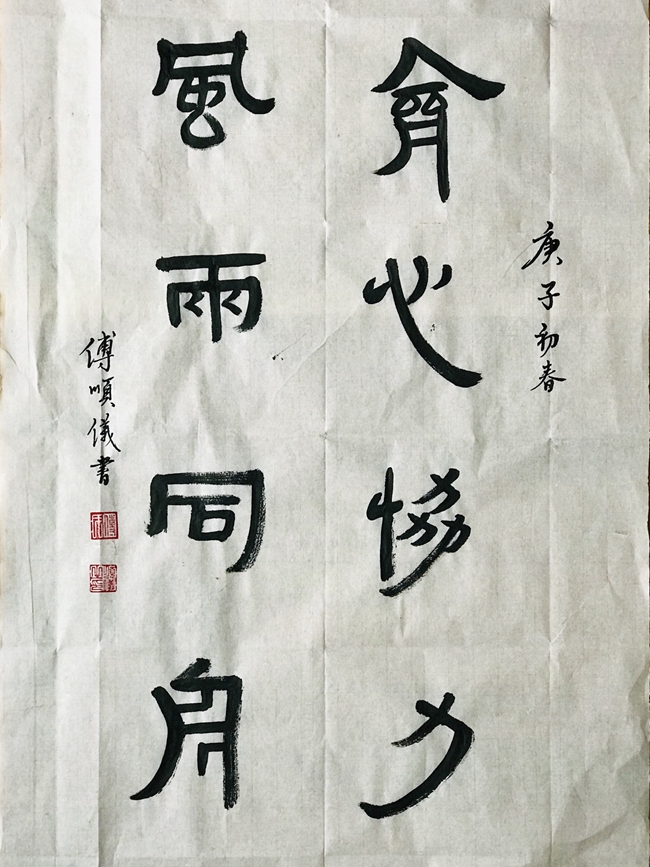 庚子初春
齊心恊力
風雨同舟
傅順儀書